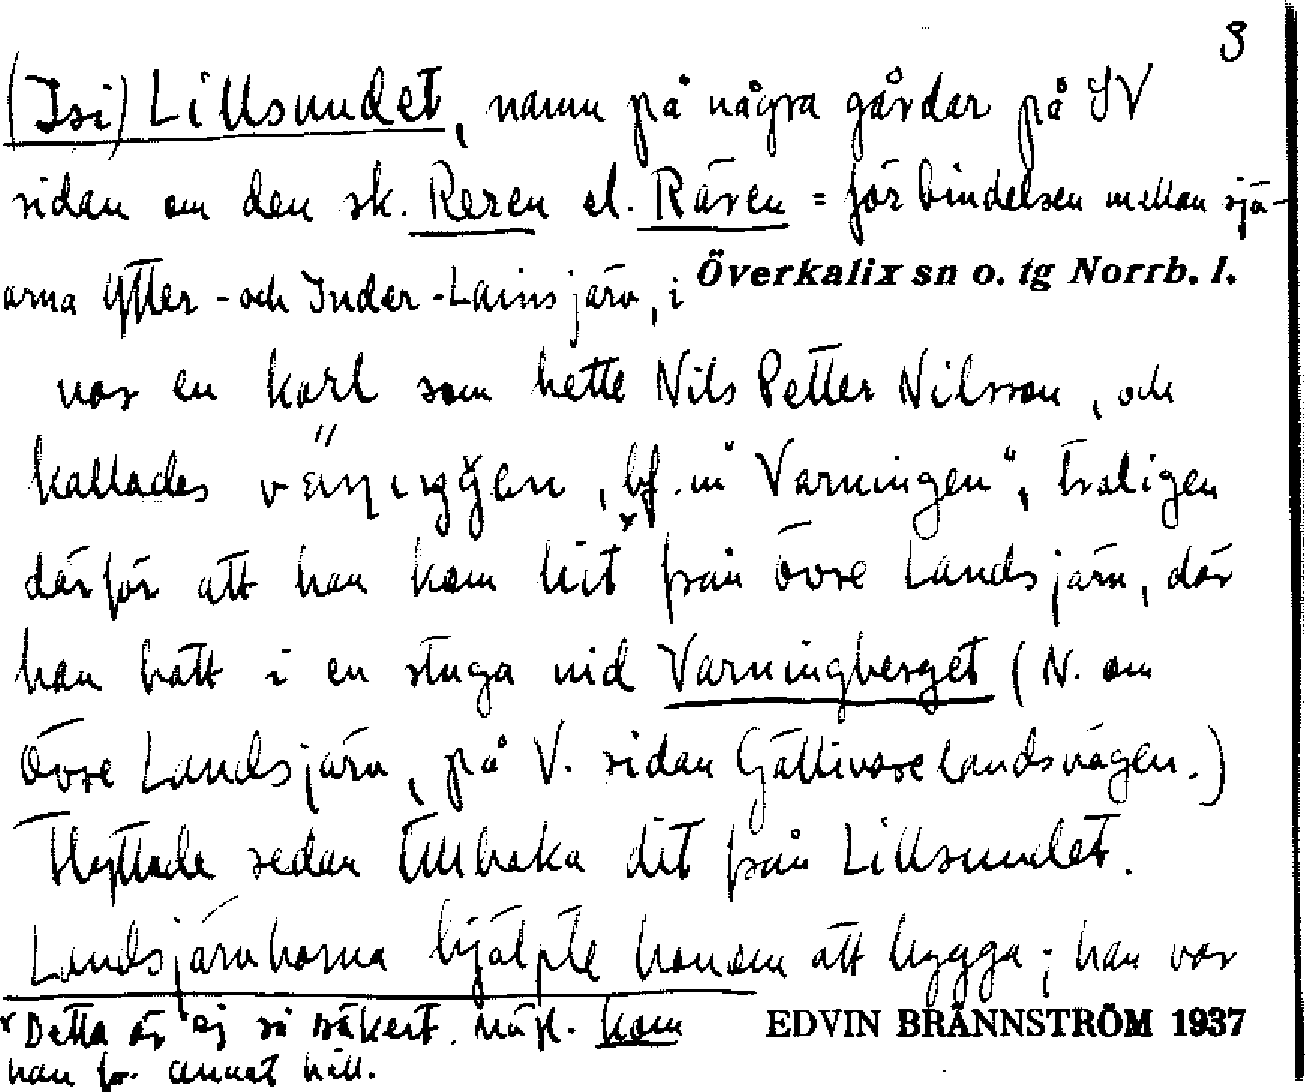 3
(Isi) Lillsundet, namn på några gårdar på SV
sidan om den sk. Reren el. Rären = förbindelsen mellan sjö-
arna Ytter- och Inder-Lainsjärv, i Överkalix sn o. tg Norrb. l.
var en karl som hette Nils Petter Nilsson, och
kallades bf. in "Varningen", troligen
därför att han kom hit* från Övre Landsjärv, där
han hatt i en stuga vid Varningberget (N. om
Övre Landsjärv, på V. sidan Gällivare landsvägen.)
Flyttade sedan tillbaka dit från Lillsundet.
Landsjärvborna hjälpte honom att bygga; han var
* Detta är ej så säkert. Möjl. kom EDVIN BRÄNNSTRÖM 1937
han fr. annat håll.